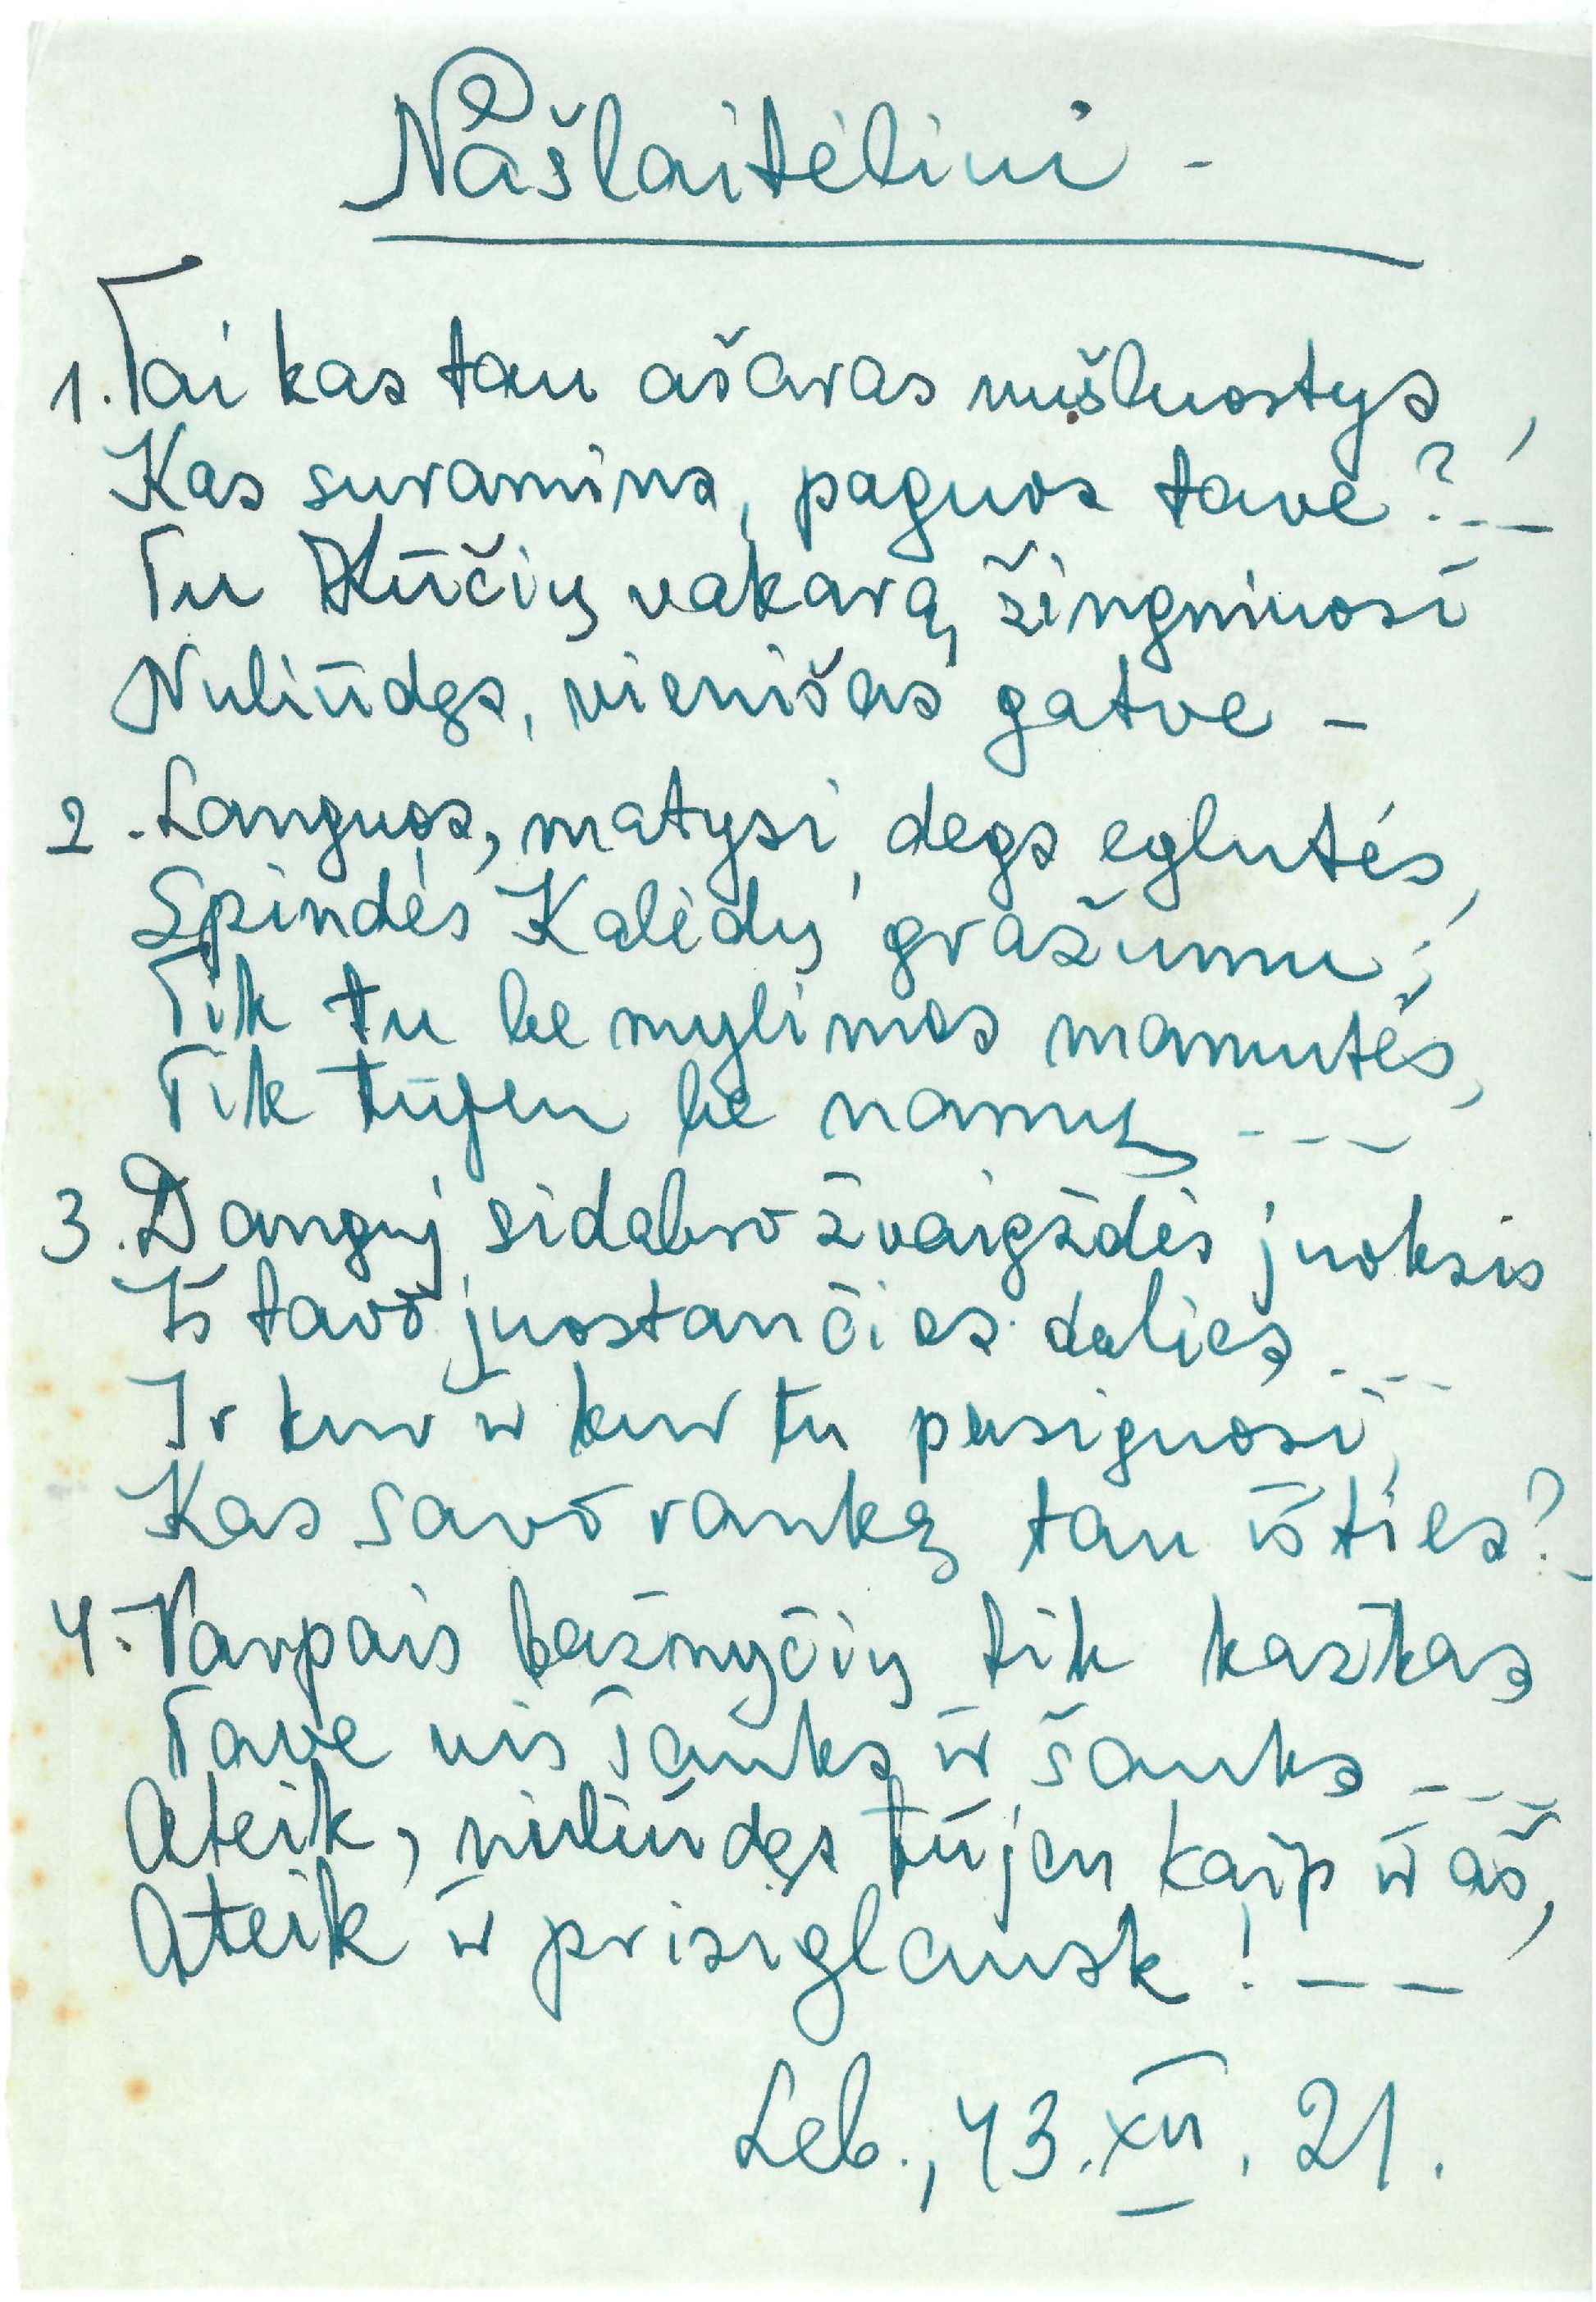 Našlaitėliui -
1. Tai kas tau ašaras nušluostys,
Kas suramins, paguos tave? - -
Tu Kūčių vakarą žingniuosi
Nuliūdęs, vienišas gatve -
2. Languos, matysi, degs eglutės,
Spindės Kalėdų gražumu;
Tik tu be mylimos mamutės,
Tik tūjen be namų - - -
3. Danguj sidabro žvaigždės juoksis
Iš tavo juostančios dalies - - -
Ir kur ir kur tu pasiguosi,
Kas savo ranką tau išties? -
4. Varpais bažnyčių tik kažkas
Tave vis šauks ir šauks - - -
Ateik, nuliūdęs tūjen kaip ir aš,
Ateik ir prisiglausk! - -
Leb., 43. XII. 21.